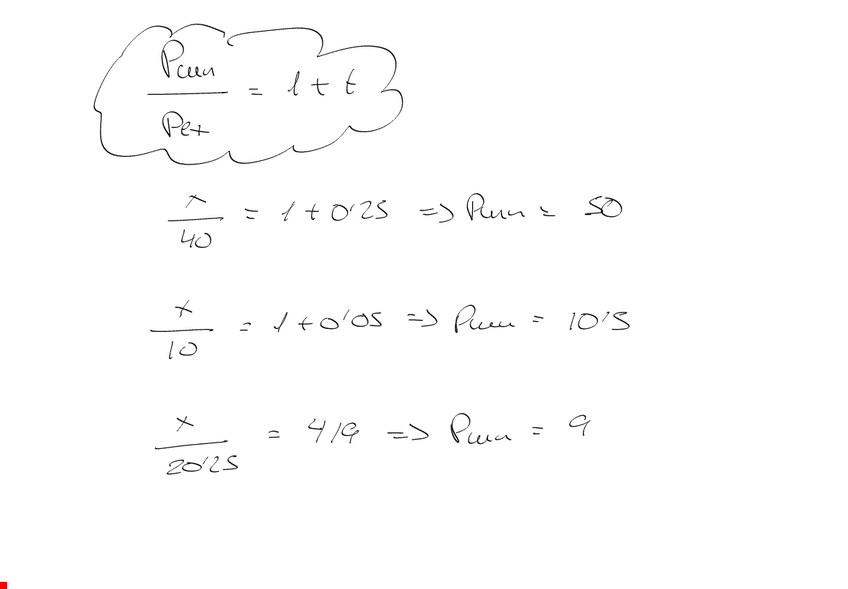 Pcun
/
Pex
= 1 + t
x / 40 = 1 + 0'25 => Pcun = 50
x / 10 = 1 + 0'05 => Pcun = 10'5
x / 20'25 = 4/9 => Pcun = 9